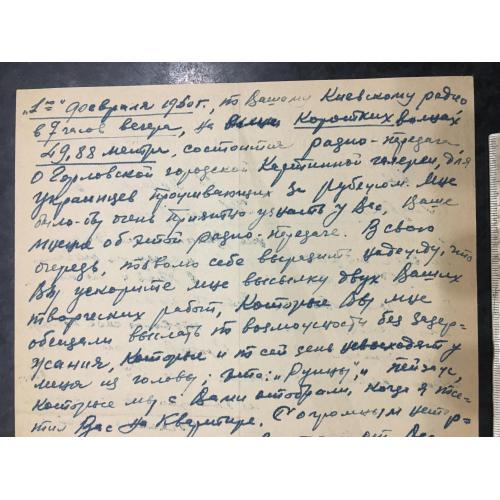 "1го" февраля 1960г., по Вашему Киевскому радио
в 7 часов вечера, на Коротких волнах
49,88 метра, состоится радио-передача
о Горловской городской Картинной галереи, для
Украинцев проживающих за рубежом. Мне
было-бы очень приятно узнать у Вас, Ваше
мнение об этой радио-передаче. В свою
очередь, позволю себе выразить надежду, что
Вы ускорите мне высылку двух Ваших
творческих работ, которые Вы мне
обещали выслать по возможности без задер-
жания, которые и по сей день у
меня из головы; это: и пейзаж,
которые мы с Вами отобрали, когда я посе-
тил Вас на квартире. С огромным нетер-